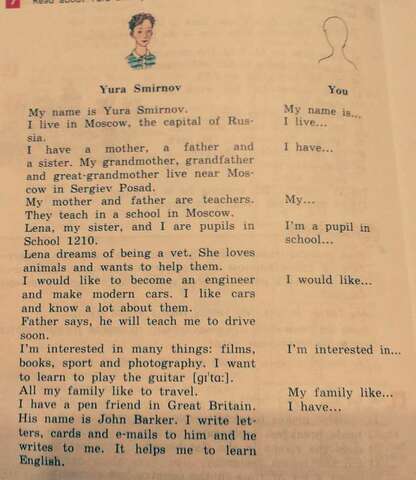 7 Read about Yura
Yura Smirnov You
My name is Yura Smirnov. My name is...
I live in Moscow, the capital of Rus- I live...
sia.
I have a mother, a father and I have...
a sister. My grandmother, grandfather
and great-grandmother live near Mos-
cow in Sergiev Posad.
My mother and father are teachers. My...
They teach in a school in Moscow.
Lena, my sister, and I are pupils in I'm a pupil in
School 1210. school...
Lena dreams of being a vet. She loves
animals and wants to help them.
I would like to become an engineer I would like...
and make modern cars. I like cars
and know a lot about them.
Father says, he will teach me to drive
soon.
I'm interested in many things: films, I'm interested in...
books, sport and photography. I want
to learn to play the guitar [gɪ'tɑ:].
All my family like to travel. My family like...
I have a pen friend in Great Britain. I have...
His name is John Barker. I write let-
ters, cards and e-mails to him and he
writes to me. It helps me to learn
English.